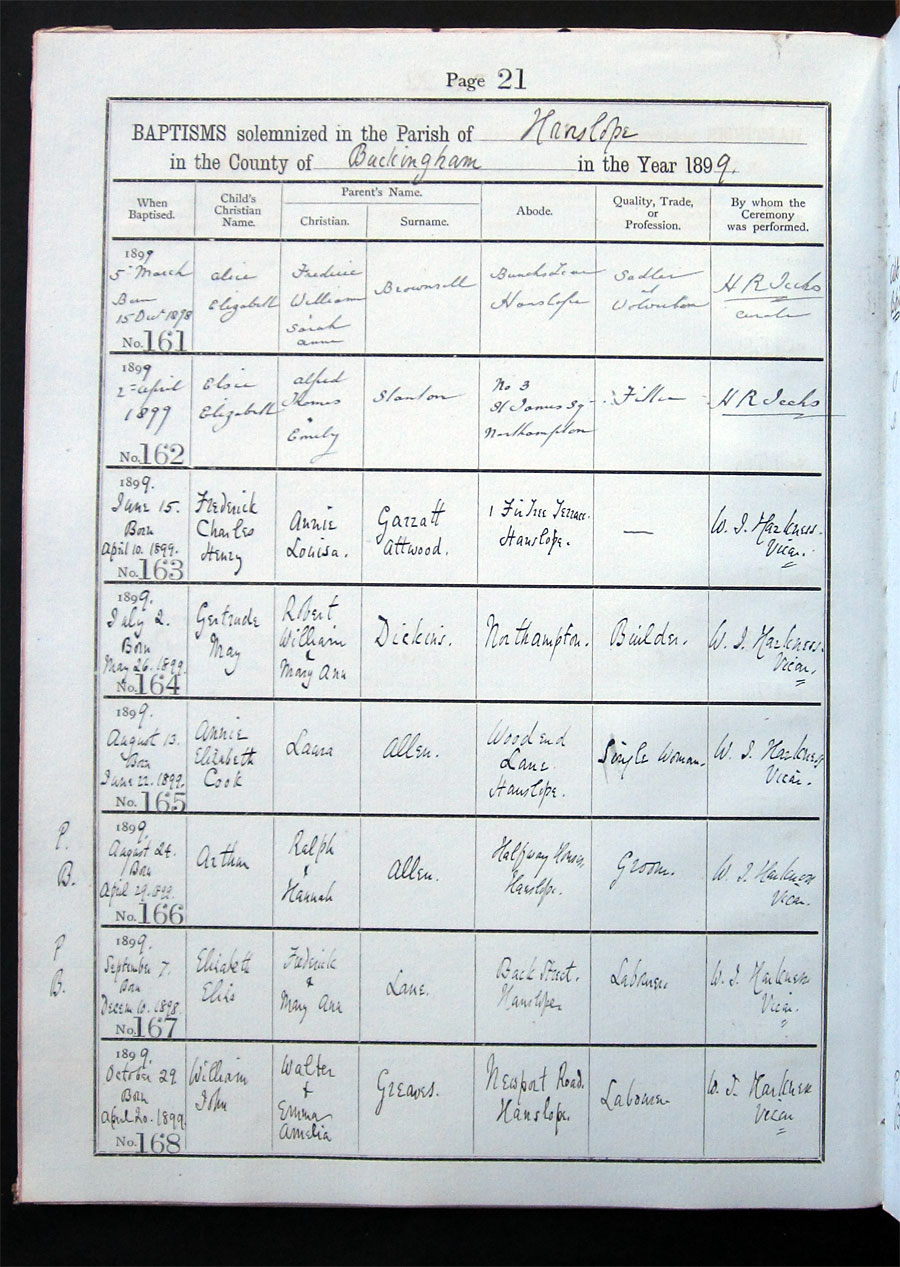 Page 21
BAPTISMS solemnized in the Parish of Hanslope
in the County of Buckingham in the Year 1899.
When Baptised.
Child's Christian Name.
Parent's Name.
Christian.
Surname.
Abode.
Quality, Trade, or Profession.
By whom the Ceremony was performed.
1899
5 March
Born
15 Dec 1898
No. 161
Alice
Elizabeth
Frederic
William
Sarah
Anne
Brownsell
Hanslope
Sadler
at
Wolverton
H R Jecks
1899
2 April
1899
No. 162
Elsie
Elizabeth
Alfred
Thomas
&
Emily
Stanton
No 3
St James Sq
Northampton
H R Jecks
1899.
June 15.
Born
April 10. 1899.
No. 163
Frederick
Charles
Henry
Annie
Louisa.
Garratt
Attwood.
1 Fir Tree Terrace.
Hanslope.
—
W. J. Harkness.
Vicar.
1899.
July 2.
Born
May 26. 1899.
No. 164
Gertrude
May
Robert
William
&
Mary Ann
Dickins.
Northampton.
Builder.
W. J. Harkness.
Vicar.
1899.
August 13.
Born
June 22. 1899.
No. 165
Annie
Elizabeth
Cook
Laura
Allen.
Wood end
Lane.
Hanslope.
Single Woman.
W. J. Harkness
Vicar.
P.
B.
1899.
August 24.
Born
April 29. 1899.
No. 166
Arthur
Ralph
&
Hannah
Allen.
Halfway House,
Hanslope.
Groom.
W. J. Harkness
Vicar.
P
B.
1899.
September 7.
Born
Decem 10. 1898.
No. 167
Elizabeth
Elsie
Frederick
&
Mary Ann
Lane.
Back Street.
Hanslope.
Labourer.
W. J. Harkness
Vicar.
1899.
October 29.
Born
April 20. 1899.
No. 168
William
John
Walter
+
Emma
Amelia
Greaves.
Newport Road.
Hanslope.
Labourer
W. J. Harkness
Vicar